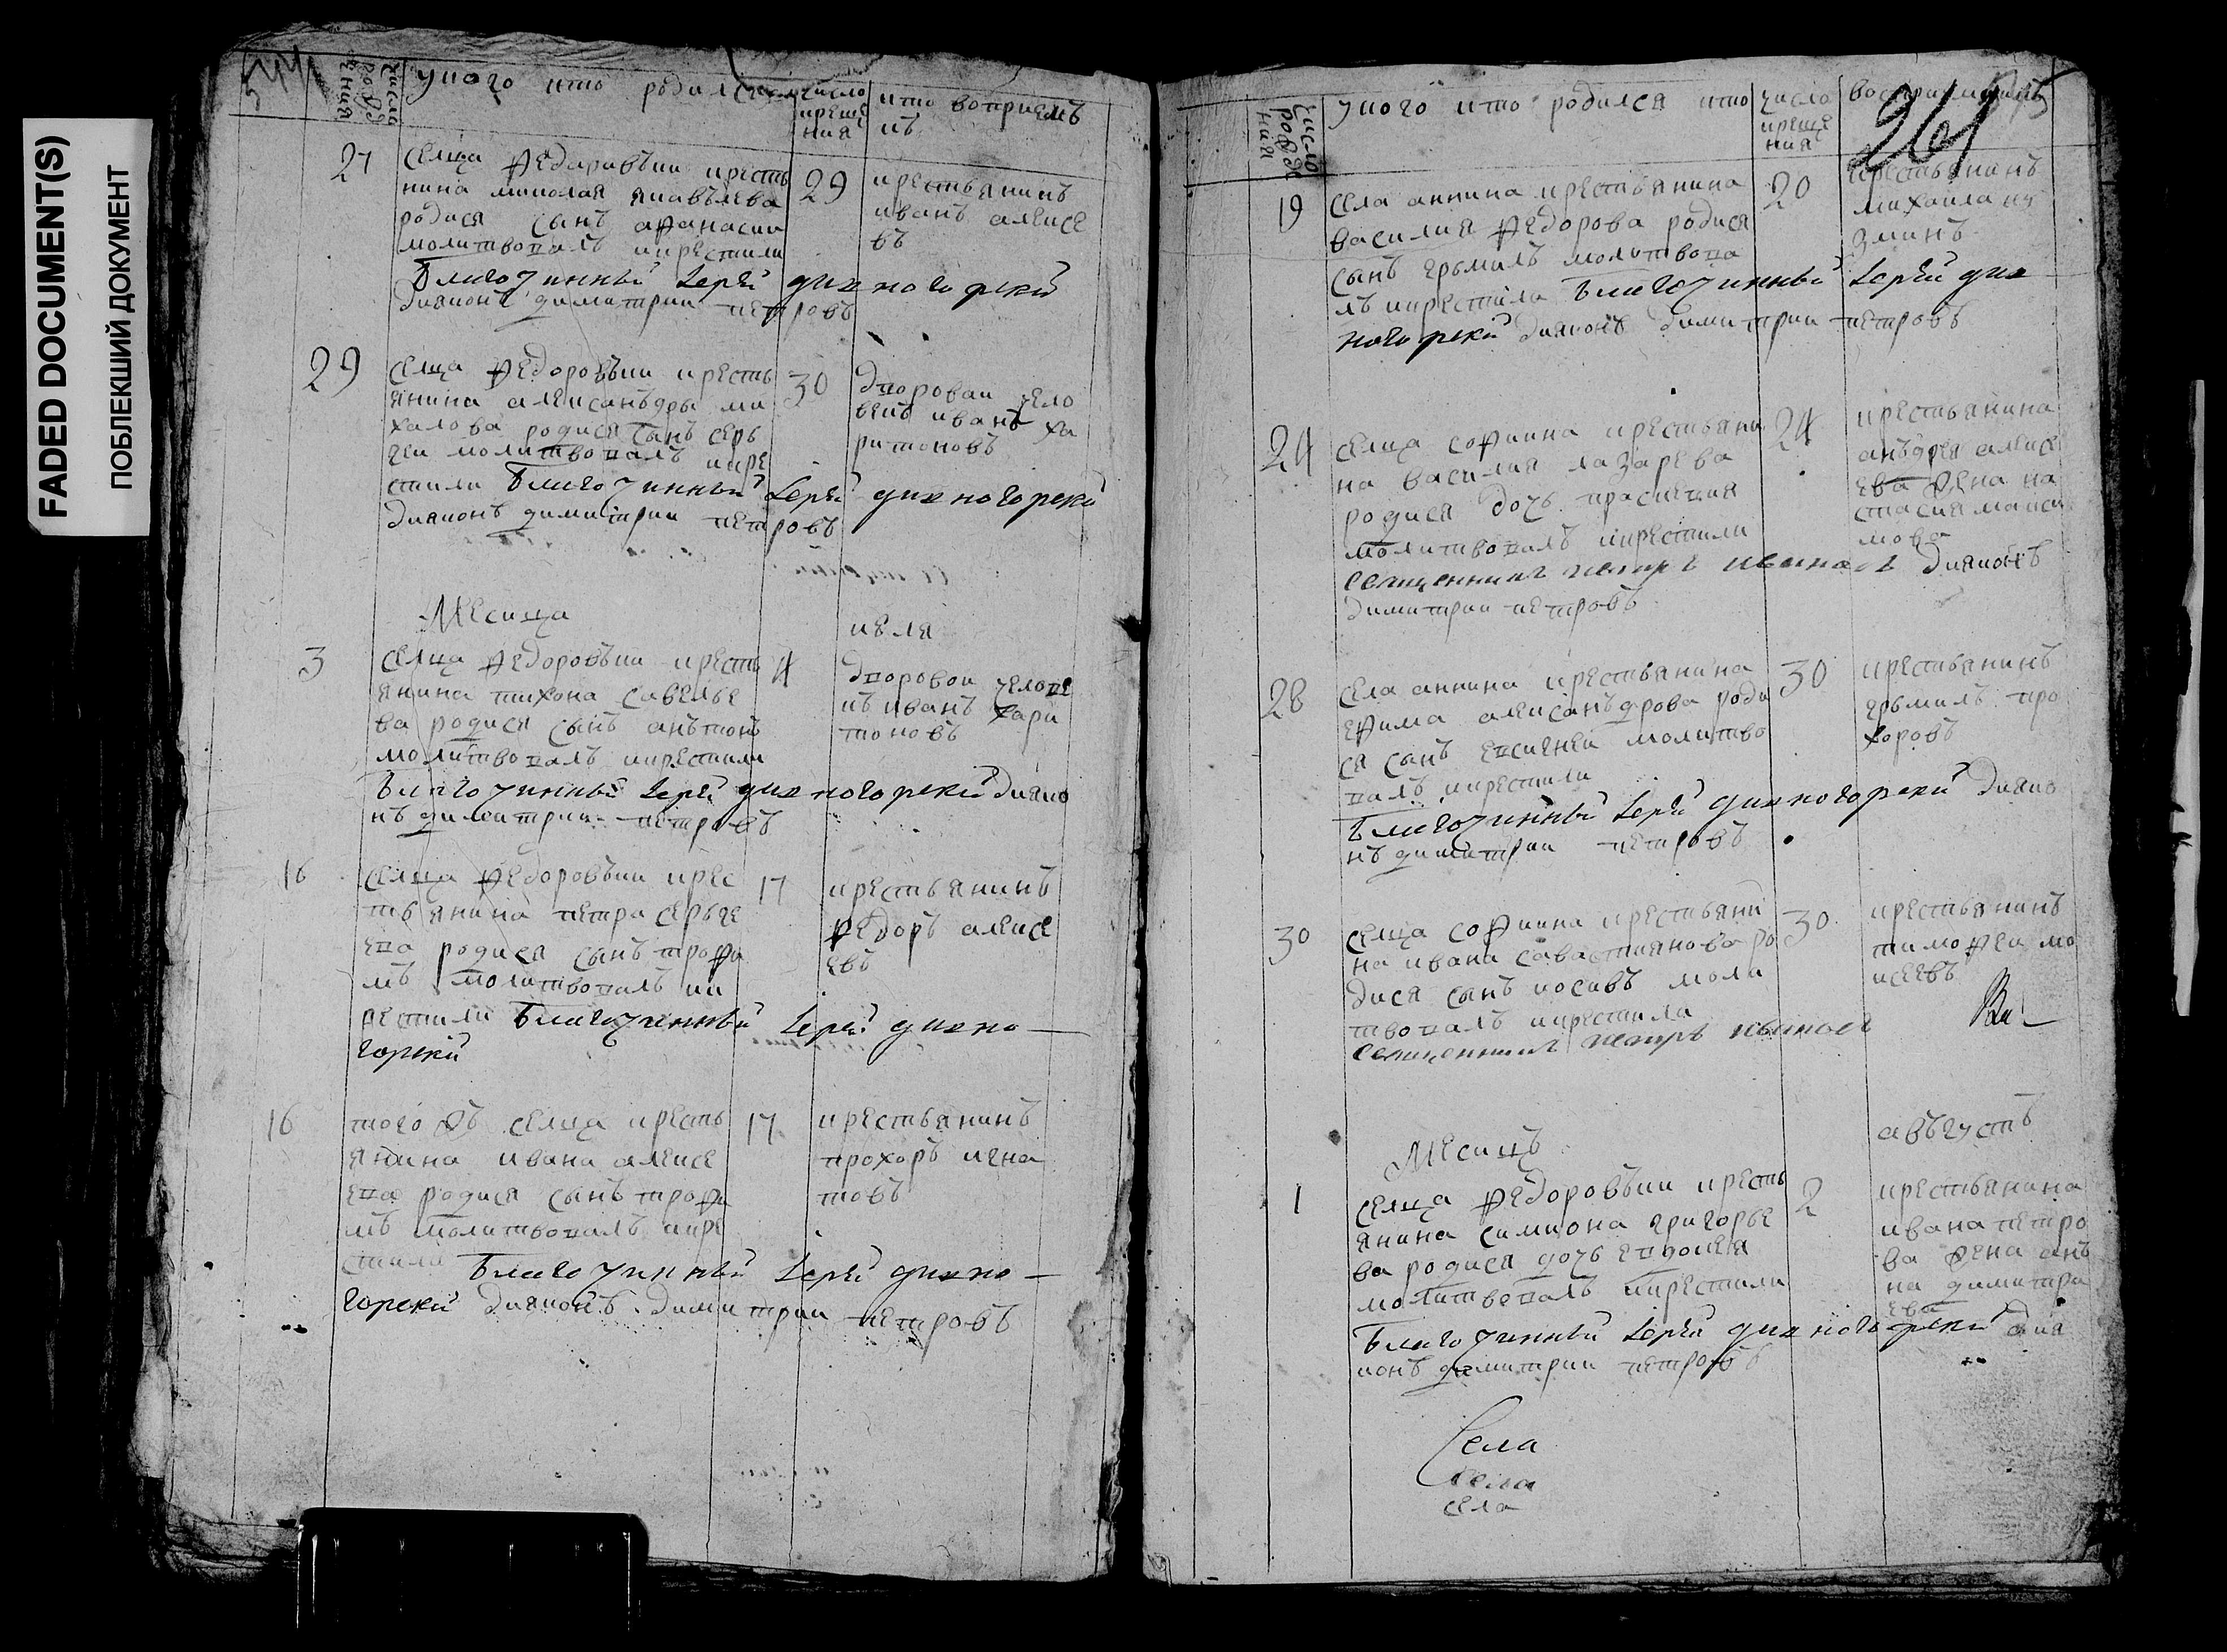 FADED DOCUMENT(S)
ПОБЛЕКШИЙ ДОКУМЕНТ
544
число рожде ния
у кого кто родился
число креще ния
кто восприем къ
27
селца федаравъки кресть
нина миколая яковълева
родися сынъ афанасии
молитвовалъ икрестили
29
крестьянинъ
иванъ алексе
въ
благочинный иерей дивногорский
диаконъ димитрии петровъ
29
селца федоровъки кресть
янина алексанъдры ми
халова родися сынъ серь
геи молитвовалъ икре
стили благочинный иерей дивногорский
диаконъ димитрии петровъ
30
дворовои чело
векъ иванъ ха
ритоновъ
Месица
июля
3
селца федоровъки кресть
янина тихона савелье
ва родися сынъ анътонъ
молитвовалъ икрестили
4
дворовои челове
къ иванъ хари
тоновъ
благочинный иерей дивногорский диако
нъ димитрии петровъ
16
селца федоровъки крес
тьянина петра серьге
ева родися сынъ трофи
мъ молитвовалъ ик
рестили благочинный иерей дивно
горский
17
крестьянинъ
федоръ алексе
евъ
16
тогожъ селца кресть
янина ивана алексе
ева родися сынъ трофи
мъ молитвовалъ икре
стили благочинный иерей дивно
горский диаконъ димитрии петровъ
17
крестьянинъ
прохоръ игна
товъ
число рожде ния
у кого кто родился кто
число креще ния
восприемникъ
261
19
села аннина крестьянина
василия федорова родися
сынъ ермилъ молитвова
лъ икрестили благочинный иерей див
ногорский диаконъ димитрии петровъ
20
крестьянинъ
михаила ку
зминъ
24
селца софиина крестьяни
на василия лазарева
родися дочь прасковия
молитвовалъ икрестили
священникъ петръ ивановъ диаконъ
димитрии петровъ
24
крестьянина
анъдрея алексе
ева жена на
стасия макси
мова
28
села аннина крестьянина
ефима алексанъдрова роди
ся сынъ евсигнеи молитво
валъ икрестили
благочинный иерей дивногорский диако
нъ димитрии петровъ
30
крестьянинъ
ермилъ про
хоровъ
30
селца софиина крестьяни
на ивана савастиянова ро
дися сынъ иосивъ моли
твовалъ икрестили
священникъ петръ ивановъ
30
крестьянинъ
тимофеи мо
исеевъ
Месицъ
авъгустъ
1
селца федоровъки кресть
янина симиона григорье
ва родися дочь евдокия
молитвовалъ икрестили
2
крестьянина
ивана петро
ва жена анъ
на димитри
ева
благочинный иерей дивногорский диа
конъ димитрии петровъ
Села
села
села